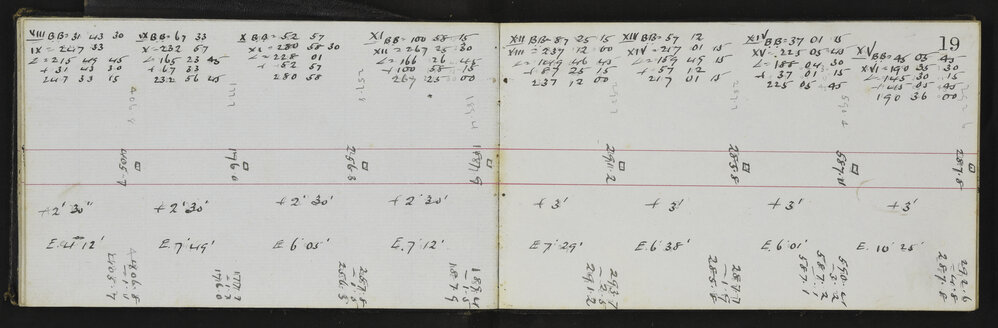 VIII BB= 31 43 30
IX = 247 33
∠= 215 49 45
+ 31 43 30
247 33 15
IX BB= 67 33
X = 232 57
∠= 165 23 45
+ 67 33
232 56 45
X BB= 52 57
XI = 280 58 30
∠= 228 01
+ 52 57
280 58
XI BB= 100 58 15
XII = 267 25 30
∠= 166 26 45
+ 100 58 15
267 25 00
XII BB= 87 25 15
XIII = 237 12 00
∠= 149 46 45
+ 87 25 15
237 12 00
XIV BB= 57 12
XIV = 217 01 15
∠= 159 49 15
+ 57 12
217 01 15
XIV BB= 37 01 15
XV = 225 05 45
∠= 188 04 30
+ 37 01 15
225 05 45
19
XV BB= 45 05 45
XVI = 190 35 30
∠= 145 30 15
+ 45 05 45
190 36 00
405.7
176.0
256.3
187.9
291.2
285.8
587.1
287.8
+ 2' 30"
+ 2' 30'
+ 2' 30'
+ 2' 30'
+ 3'
+ 3'
+ 3'
+ 3'
E. 4° 12'
E. 7° 49'
E 6° 05'
E. 7° 12'
E 7° 29'
E. 6° 38'
E. 6° 01'
E. 10° 25'
406.8
405.7
177.2
176.0
257.8
256.3
189.4
1.5
187.9
293.7
2.5
291.2
287.7
1.9
285.8
590.4
3.2
587.2
587.1
292.6
4.8
287.8